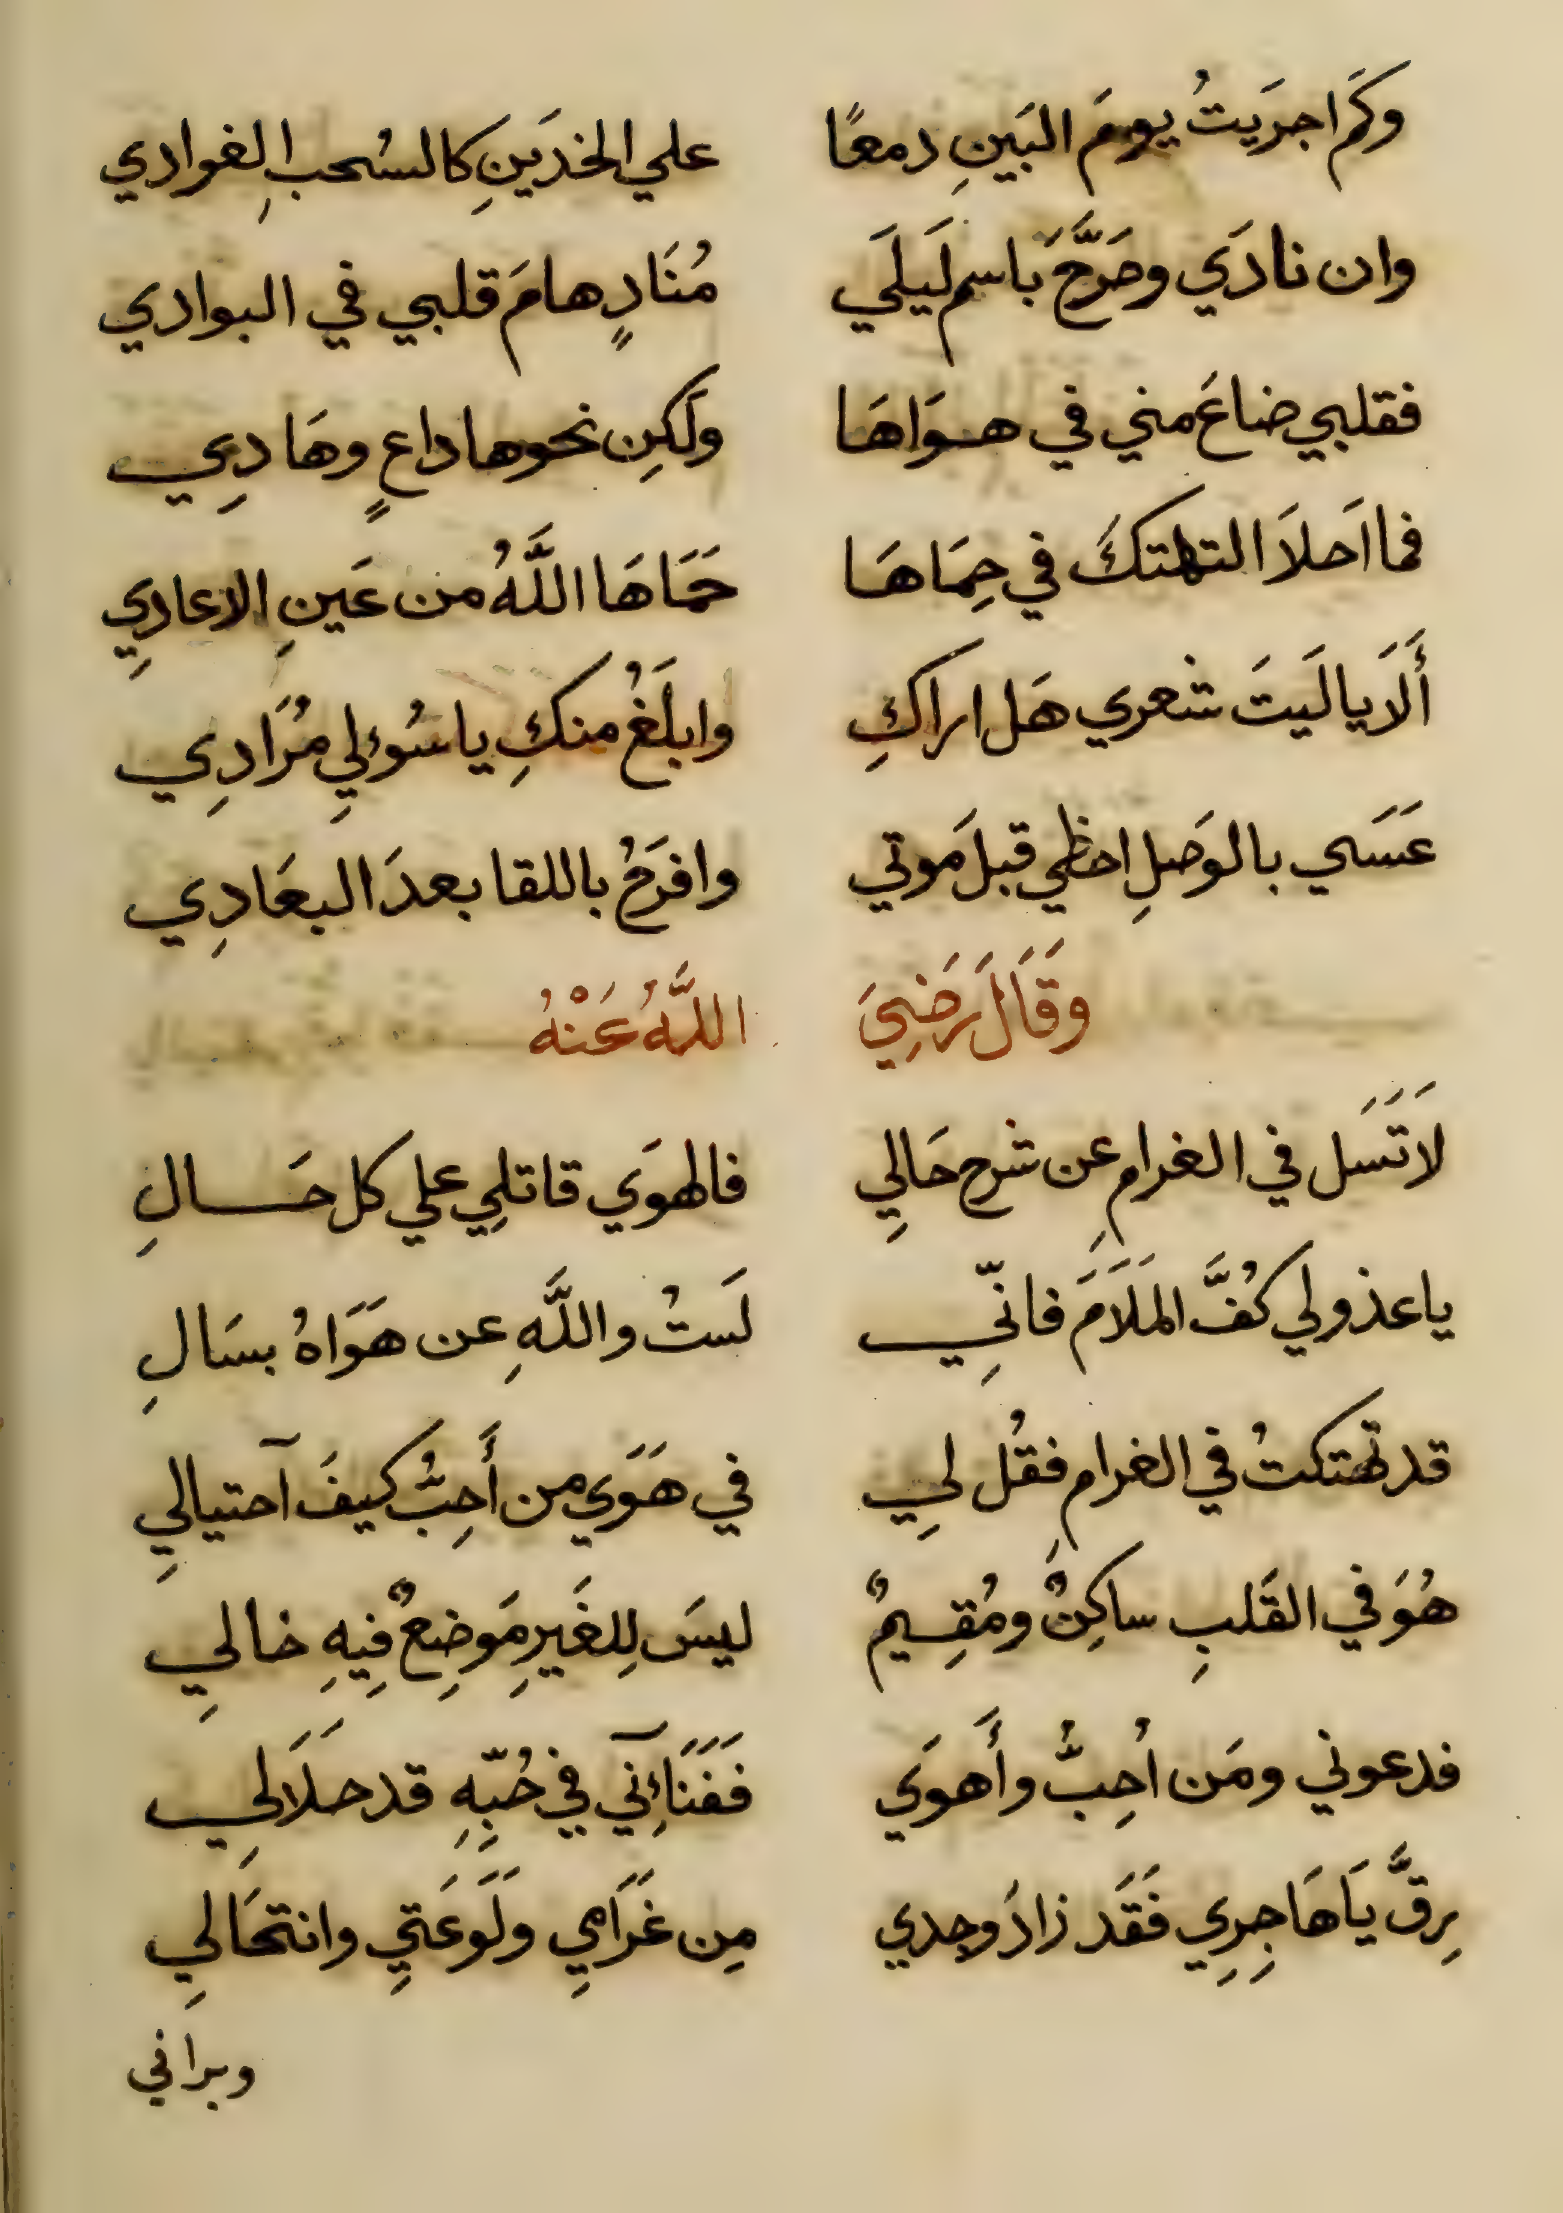 وكَم اجرَيتُ يومَ البَينِ دمعًا علي الخدَينِ كالسُحبِ الغوادي
وان نادَي وصَرَّحَ باسمِ لَيلَي مُنَادٍ هامَ قلبي في البوادي
فقلبي ضاعَ مني في هوَاهَا ولَكِن نحوها داعٍ وهَادِي
فما اَحلاَ التهتكَ في حِمَاهَا حَمَاهَا اللَّهُ من عَينِ الاعادِي
أَلاَ يا لَيتَ شعري هَل اراكِ وابلَغُ منكِ يا سُوءلِي مُرَادِي
عَسَي بالوَصلِ احظي قبلَ مَوتي وافرَحُ باللقا بعدَ البعَادِي
وَقَالَ رَضِيَ اللَّهُ عَنْهُ
لاَ تَسَل في الغرامِ عن شرح حَالِي فالهوَي قاتلِي علي كل حَالِ
يا عذولي كُفَّ المَلَامَ فانِّي لَستُ واللَّهِ عن هَوَاهُ بسَالِ
قد تهتكتُ في الغرامِ فقُل لِي في هَوَي من أَحِبُّ كيفَ آحتيالي
هُوَ في القَلبِ ساكِنٌ ومُقِيمٌ ليسَ لِلغَيرِ مَوضِعٌ فِيهِ خالي
فدعوني ومَن اُحِبُّ وأَهوَي فَفَنَاءِآنِي في حُبِّهِ قد حلَا لِي
رِقَّ يَا هَاجِرِي فَقَد زادَ وجدي مِن غَرَامِي ولَوعَتِي وانتحَالِي
وبراني